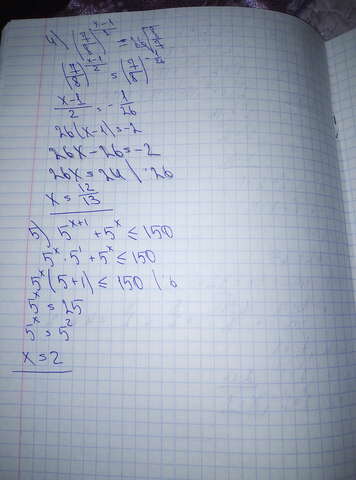 4) (7/8)^((x-1)/2) =
(7/8)^((x-1)/2) = (7/8)^(-1/26)
(x-1)/2 = -1/26
26(x-1)=-2
26x-26=-2
26x=24 | :26
x = 12/13
5) 5^(x+1) + 5^x ≤ 150
5^x · 5^1 + 5^x ≤ 150
5^x (5+1) ≤ 150 | :6
5^x = 25
5^x = 5^2
x = 2